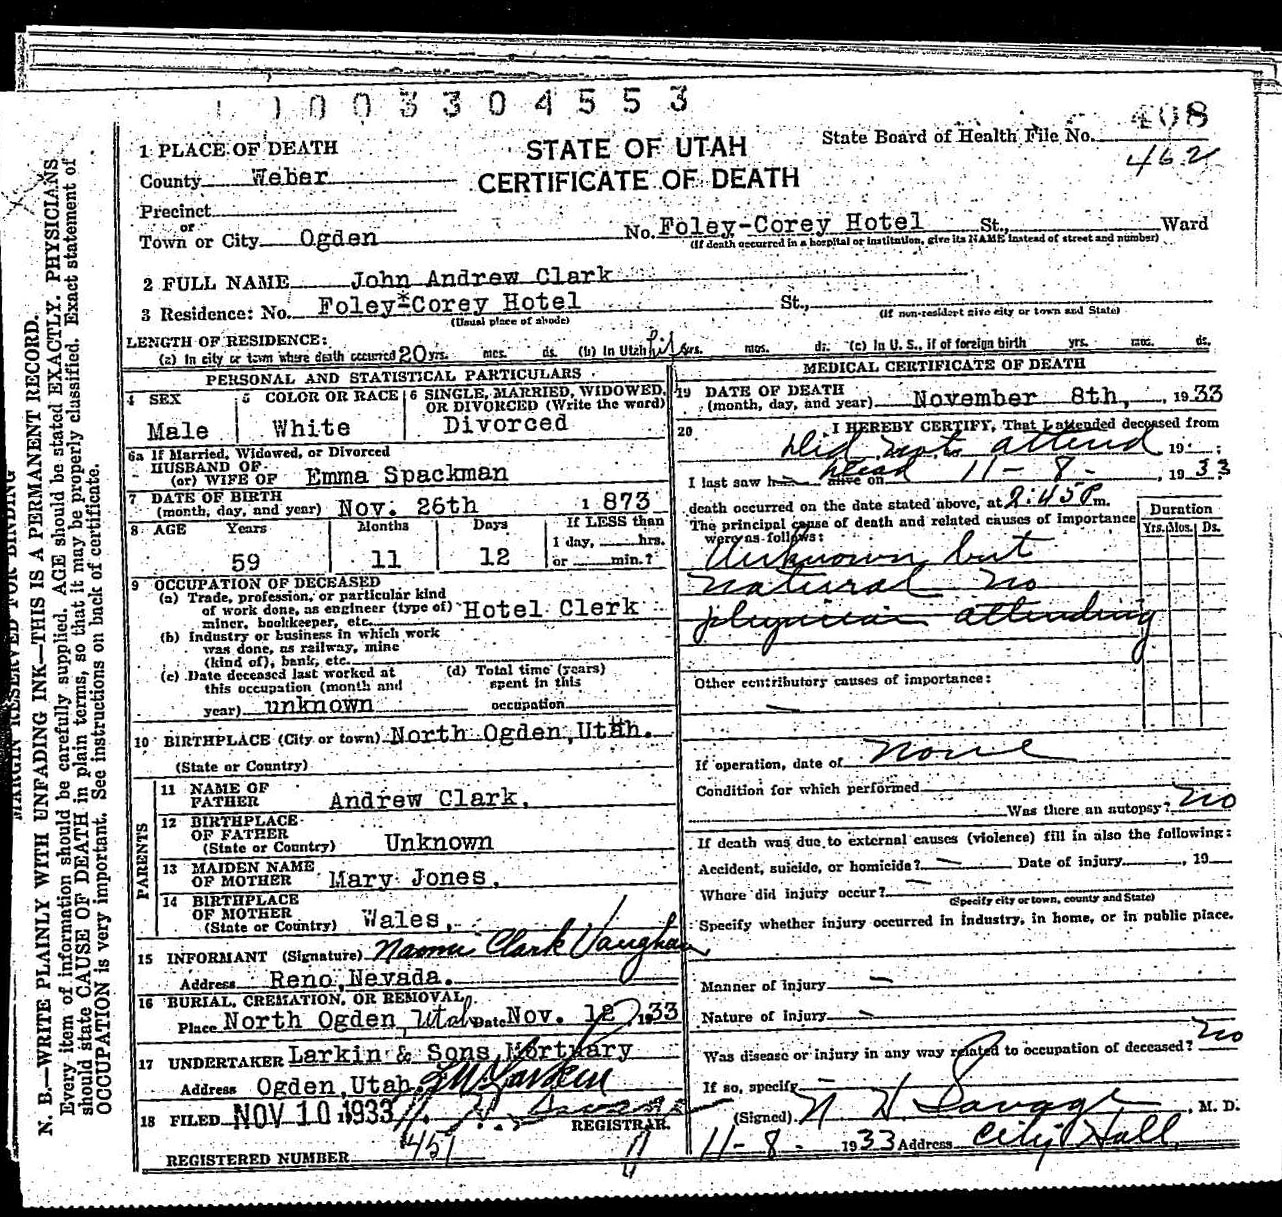 1003304553
408
State Board of Health File No.
462
STATE OF UTAH
CERTIFICATE OF DEATH
1 PLACE OF DEATH
County Weber
Precinct
or
Town or City Ogden
No. Foley-Corey Hotel St., Ward
(If death occurred in a hospital or institution, give its NAME instead of street and number)
2 FULL NAME John Andrew Clark
3 Residence: No. Foley-Corey Hotel St.,
(Usual place of abode) (If non-resident give city or town and State)
LENGTH OF RESIDENCE:
(a) In city or town where death occurred 20 yrs. mos. ds. (b) In Utah life yrs. mos. ds. (c) In U. S., if of foreign birth yrs. mos. ds.
PERSONAL AND STATISTICAL PARTICULARS
4 SEX
Male
5 COLOR OR RACE
White
6 SINGLE, MARRIED, WIDOWED,
OR DIVORCED (Write the word)
Divorced
6a If Married, Widowed, or Divorced
HUSBAND OF
(or) WIFE OF Emma Spackman
7 DATE OF BIRTH
(month, day, and year) Nov. 26th 1873
8 AGE Years Months Days If LESS than
1 day, hrs.
59 11 12 or min.?
9 OCCUPATION OF DECEASED
(a) Trade, profession, or particular kind
of work done, as engineer (type of) Hotel Clerk
miner, bookkeeper, etc.
(b) Industry or business in which work
was done, as railway, mine
(kind of), bank, etc.
(c) Date deceased last worked at
this occupation (month and
year) unknown
(d) Total time (years)
spent in this
occupation
10 BIRTHPLACE (City or town) North Ogden, Utah.
(State or Country)
PARENTS
11 NAME OF
FATHER Andrew Clark.
12 BIRTHPLACE
OF FATHER
(State or Country) Unknown
13 MAIDEN NAME
OF MOTHER Mary Jones.
14 BIRTHPLACE
OF MOTHER
(State or Country) Wales.
15 INFORMANT (Signature) Clark Vaughan
Address Reno, Nevada.
16 BURIAL, CREMATION, OR REMOVAL
Place North Ogden, Utah Date Nov. 12, 1933
17 UNDERTAKER Larkin & Sons Mortuary
Address Ogden, Utah. Larkin
18 FILED NOV 10 1933
REGISTRAR.
REGISTERED NUMBER 451
MEDICAL CERTIFICATE OF DEATH
19 DATE OF DEATH
(month, day, and year) November 8th, 1933
20 I HEREBY CERTIFY, That I attended deceased from
Did not attend 19 ;
I last saw h dead alive on 11-8- , 1933
death occurred on the date stated above, at 2:45 P m.
The principal cause of death and related causes of importance
were as follows:
Duration
Yrs. Mos. Ds.
Unknown but
natural no
physician attending
Other contributory causes of importance:
If operation, date of none
Condition for which performed
Was there an autopsy? no
If death was due to external causes (violence) fill in also the following:
Accident, suicide, or homicide? Date of injury , 19
Where did injury occur?
(Specify city or town, county and State)
Specify whether injury occurred in industry, in home, or in public place.
Manner of injury
Nature of injury
Was disease or injury in any way related to occupation of deceased? no
If so, specify
(Signed) N H Savage , M. D.
11-8- 1933 Address City Hall
MARGIN RESERVED FOR BINDING
N. B.—WRITE PLAINLY WITH UNFADING INK—THIS IS A PERMANENT RECORD.
Every item of information should be carefully supplied. AGE should be stated EXACTLY. PHYSICIANS
should state CAUSE OF DEATH in plain terms, so that it may be properly classified. Exact statement of
OCCUPATION is very important. See instructions on back of certificate.